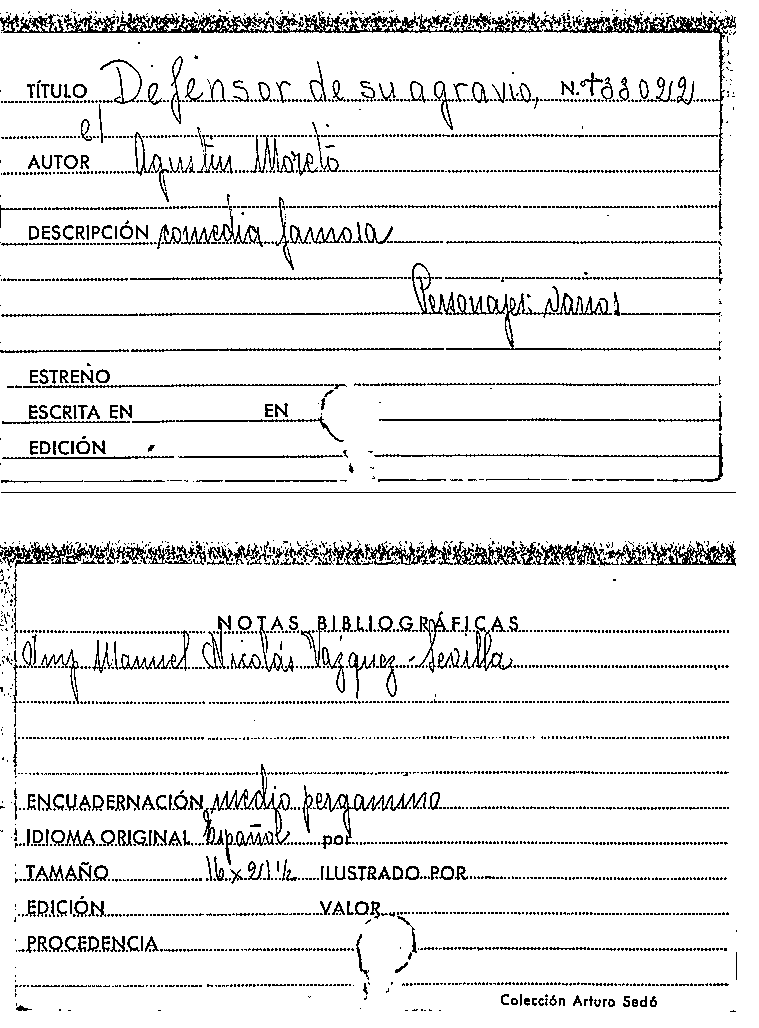 TÍTULO Defensor de su agravio,
el
AUTOR Agustín Moreto
DESCRIPCIÓN comedia famosa
Personajes: varios
ESTREÑO
ESCRITA EN EN
EDICIÓN
NOTAS BIBLIOGRÁFICAS
Imp Manuel Nicolás Vázquez - Sevilla
ENCUADERNACIÓN medio pergamino
IDIOMA ORIGINAL Español por
TAMAÑO 16 x 21 ½ ILUSTRADO POR
EDICIÓN VALOR
PROCEDENCIA
Colección Arturo Sedó